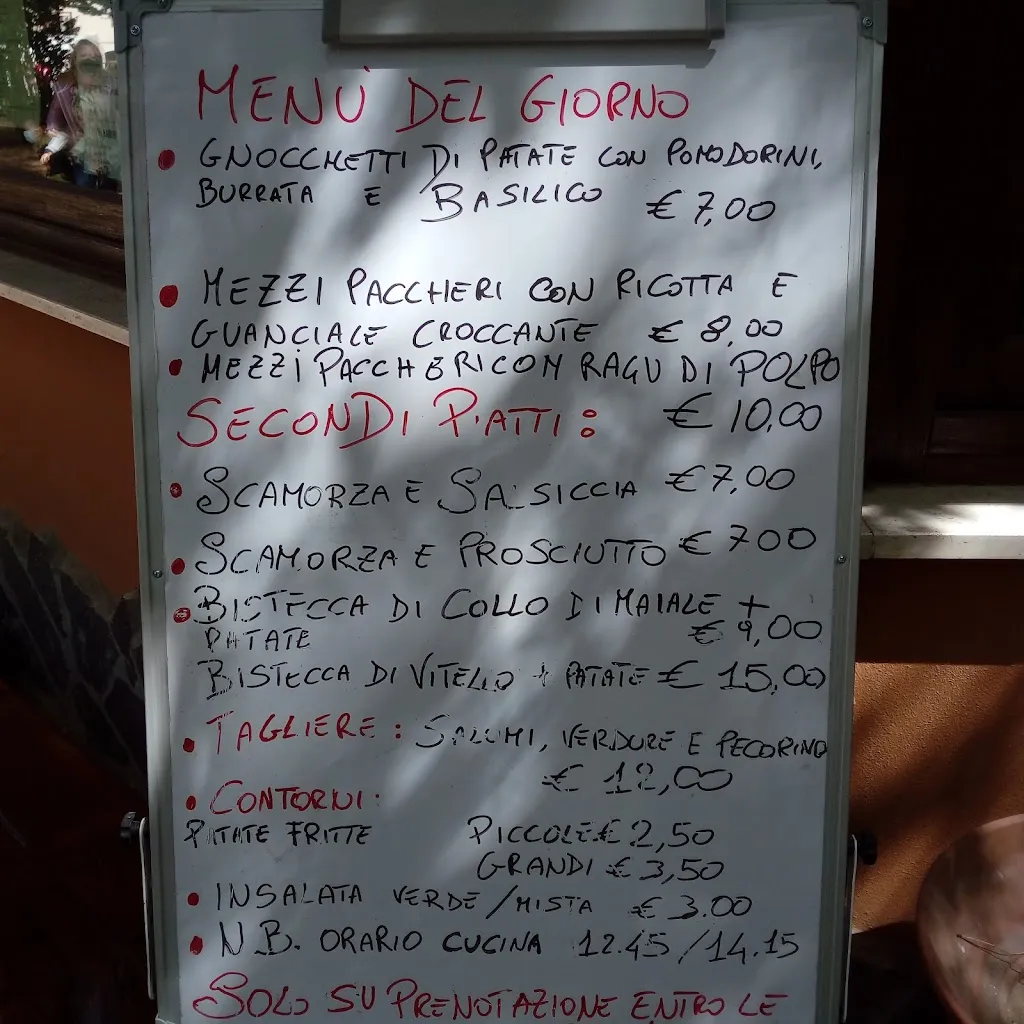 MENÙ DEL GIORNO
• GNOCCHETTI DI PATATE CON POMODORINI,
BURRATA E BASILICO € 7,00
• MEZZI PACCHERI CON RICOTTA E
GUANCIALE CROCCANTE € 8,00
• MEZZI PACCHERI CON RAGU DI POLPO
SECONDI PIATTI: € 10,00
• SCAMORZA E SALSICCIA € 7,00
• SCAMORZA E PROSCIUTTO € 700
• BISTECCA DI COLLO DI MAIALE +
PATATE € 9,00
BISTECCA DI VITELLO + PATATE € 15,00
• TAGLIERE: SALUMI, VERDURE E PECORINO
€ 12,00
• CONTORNI:
PATATE FRITTE PICCOLE € 2,50
GRANDI € 3,50
• INSALATA VERDE/MISTA € 3.00
• N.B. ORARIO CUCINA 12.45/14.15
SOLO SU PRENOTAZIONE ENTRO LE